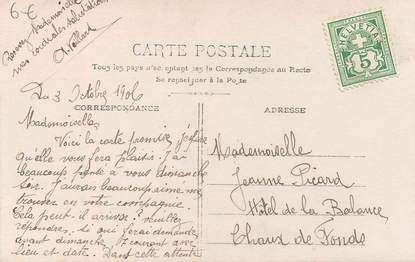 6€
Recevez Mademoiselle
mes cordiales salutations
CARTE POSTALE
Tous les pays n'acceptent pas la Correspondance au Recto
Se renseigner à la Poste
HELVETIA
5
Du 3 Octobre 1906
CORRESPONDANCE
Mademoiselle,
Voici la carte promise j'espère
qu'elle vous fera plaisir. J'ai
beaucoup pensé à vous dimanche
soir. J'aurais beaucoup aimé me
trouver en votre compagnie.
Cela peut-il arriver? Veuillez
répondre, si oui ferai demande
avant dimanche 7 courant avec
lieu et date. Dans cette attente
ADRESSE
Mademoiselle
Jeanne Picard
Hôtel de la Balance
Chaux de Fonds